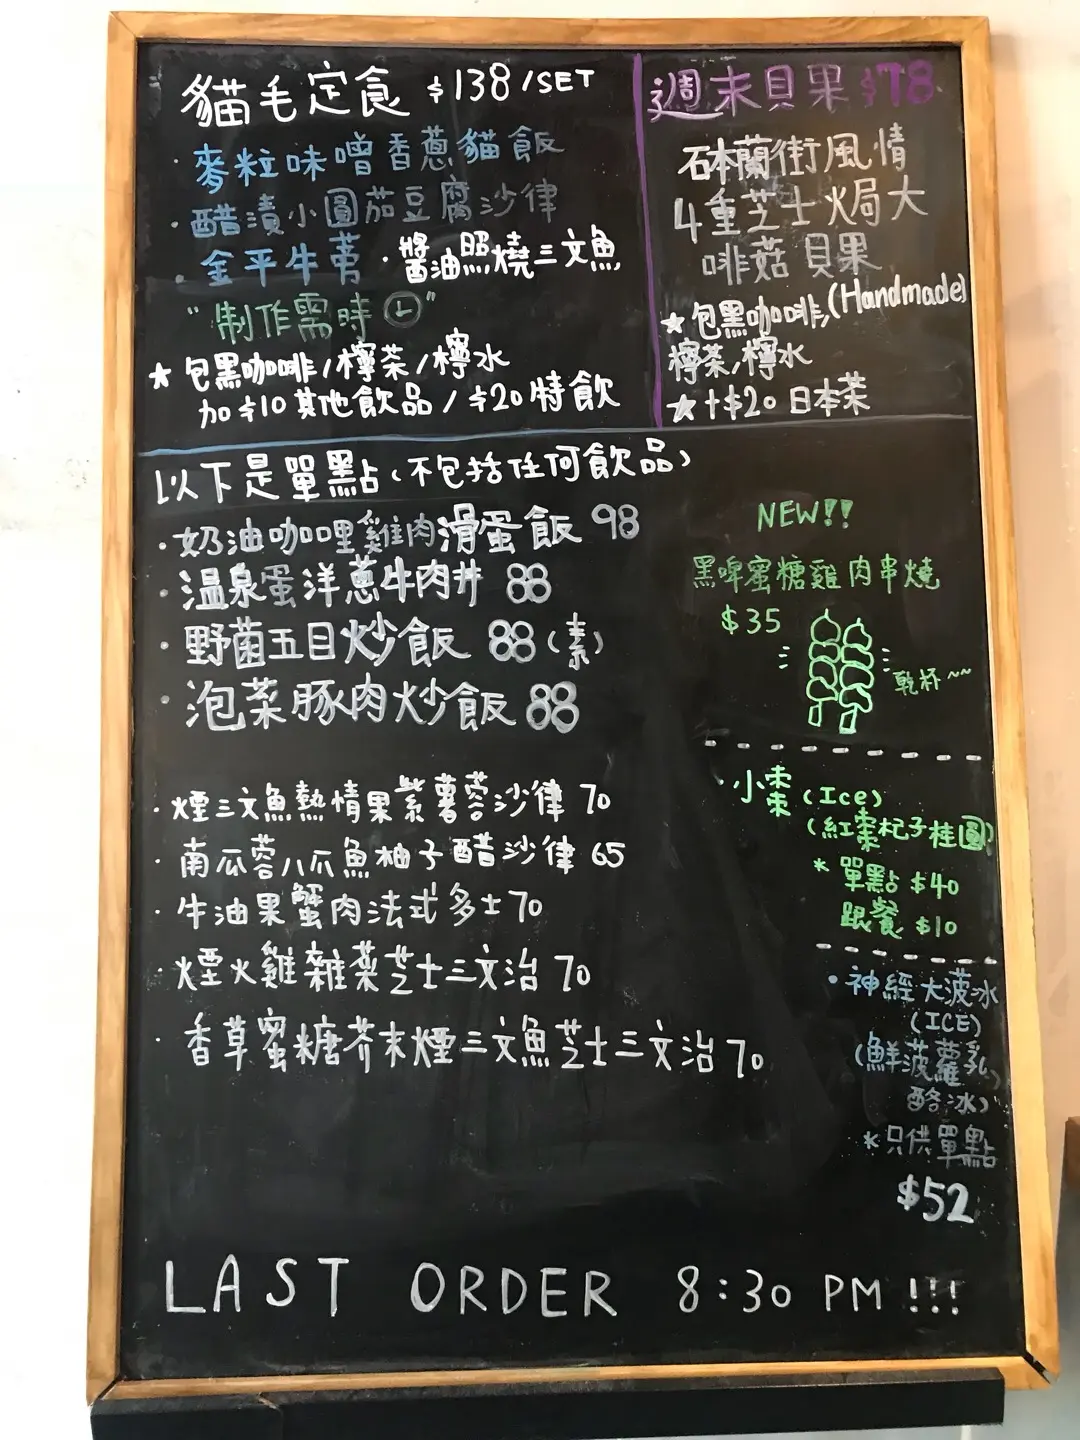 貓毛定食 $138/SET
· 麥粒味噌香蔥貓飯
· 醋漬小圓茄豆腐沙律
· 金平牛蒡 · 醬油照燒三文魚
"制作需時"
★ 包黑咖啡/檸茶/檸水
加$10其他飲品/$20特飲
週末貝果 $78
砵蘭街風情
4重芝士焗大
啡菇貝果
★ 包黑咖啡,(Handmade)
檸茶/檸水
★ +$20 日本茶
以下是單點(不包括任何飲品)
· 奶油咖哩雞肉滑蛋飯 98
· 温泉蛋洋蔥牛肉丼 88
· 野菌五目炒飯 88(素)
· 泡菜豚肉炒飯 88
· 煙三文魚熱情果紫薯蓉沙律 70
· 南瓜蓉八爪魚柚子醋沙律 65
· 牛油果蟹肉法式多士 70
· 煙火雞雜菜芝士三文治 70
· 香草蜜糖芥末煙三文魚芝士三文治 70
NEW!!
黑啤蜜糖雞肉串燒
$35
乾杯~~
· 小棗 (Ice)
(紅棗杞子桂圓)
* 單點 $40
跟餐 $10
· 神經大菠冰
(ICE)
(鮮菠蘿乳
酪冰)
* 只供單點
$52
LAST ORDER 8:30 PM !!!